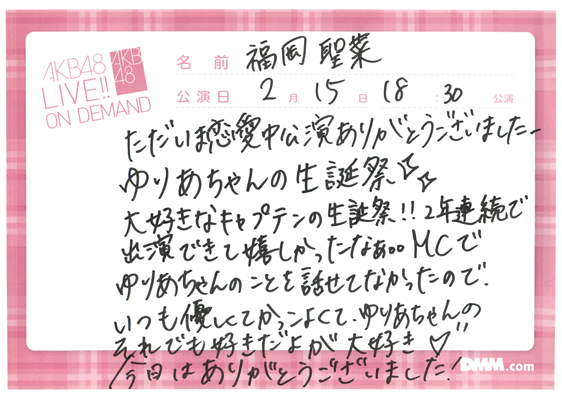 AKB48
LIVE!!
ON DEMAND
AKB
48
名前 福岡 聖菜
公演日 2月 15日 18:30 公演
ただいま恋愛中公演ありがとうございましたー
ゆりあちゃんの生誕祭
大好きなキャプテンの生誕祭!!2年連続で
出演できて嬉しかったなぁ。。MCで
ゆりあちゃんのことを話せてなかったので、
いつも優しくてかっこよくて、ゆりあちゃんの
それでも好きだよが大好き♡
今日はありがとうございました!
DMM.com